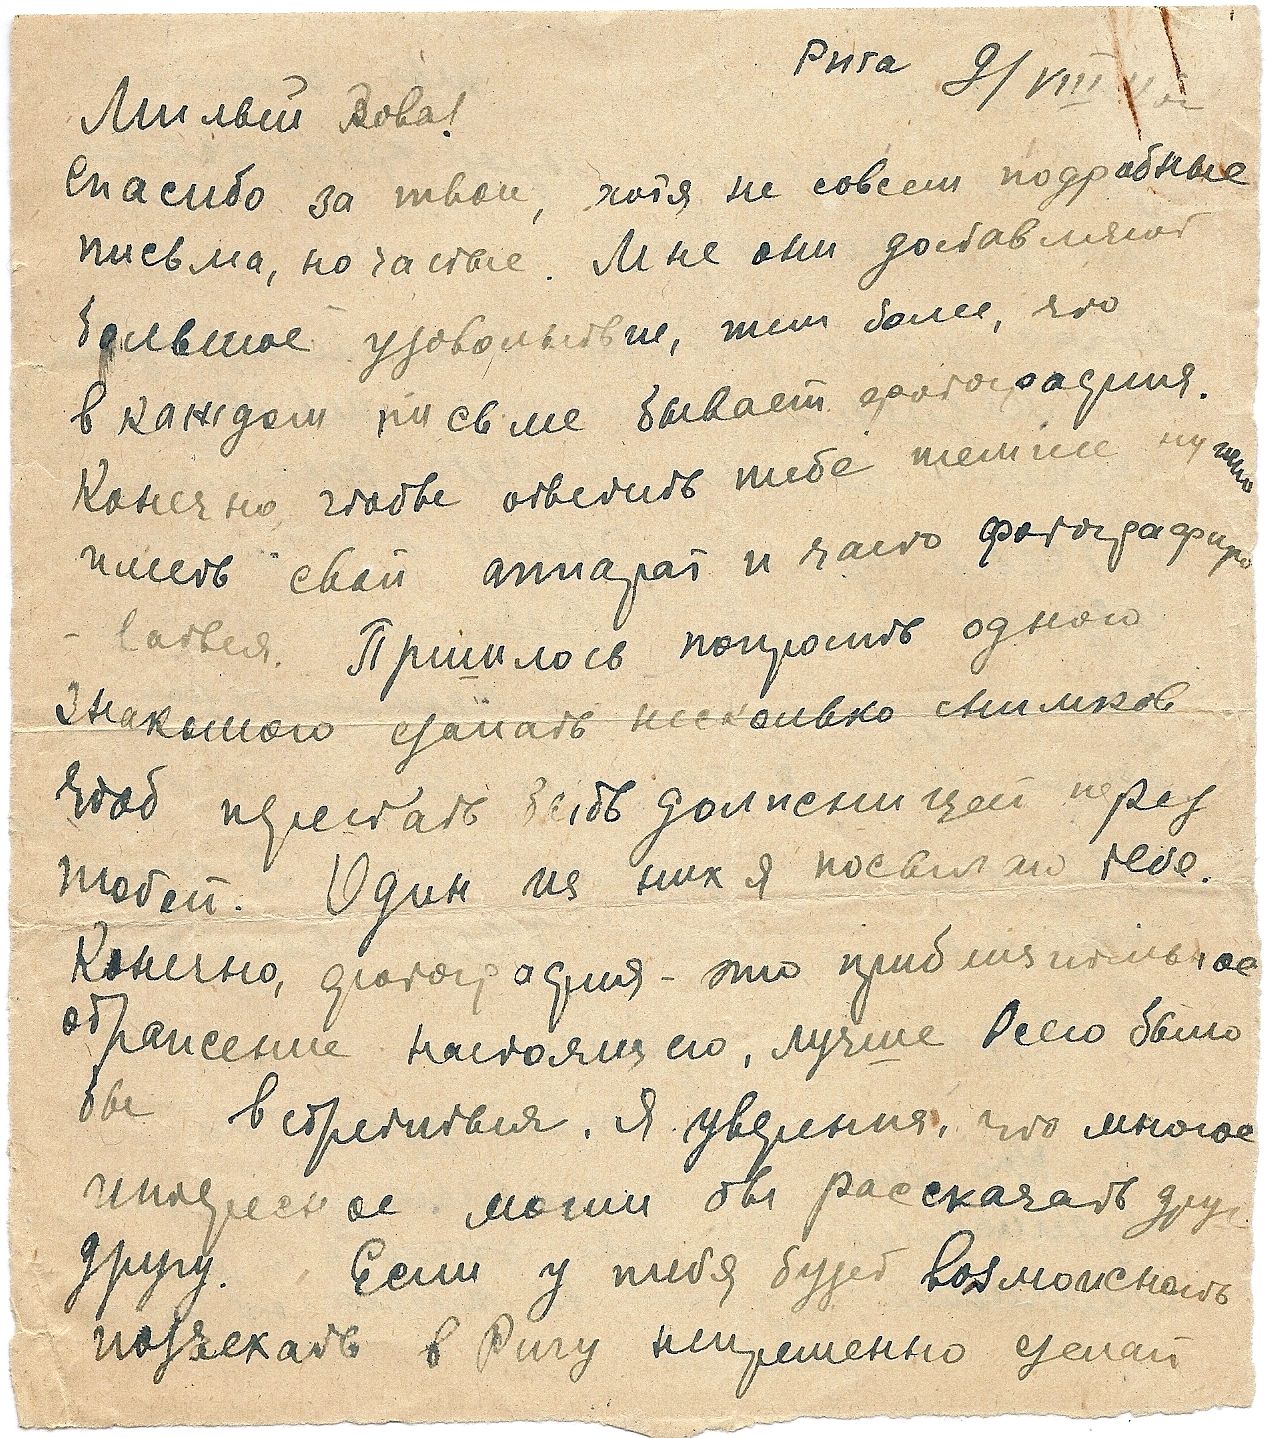 Рига 9/VIII
Милый Вова!
Спасибо за твои, хотя не совсем подробные
письма, но частые. Мне они доставляют
большое удовольствие, тем более, что
в каждом письме бывает фотография.
Конечно, чтобы ответить тебе тем же нужно
иметь свой аппарат и часто фотографиро
- ваться. Пришлось попросить одного
знакомого сделать несколько снимков
чтоб перестать быть должницей перед
тобой. Один из них я посылаю тебе.
Конечно, фотография - это приблизительное
отражение настоящего, лучше всего было
бы встретиться. Я уверена, что многое
интересное могли бы рассказать друг
другу. Если у тебя будет возможность
подъехать в Ригу непременно сделай